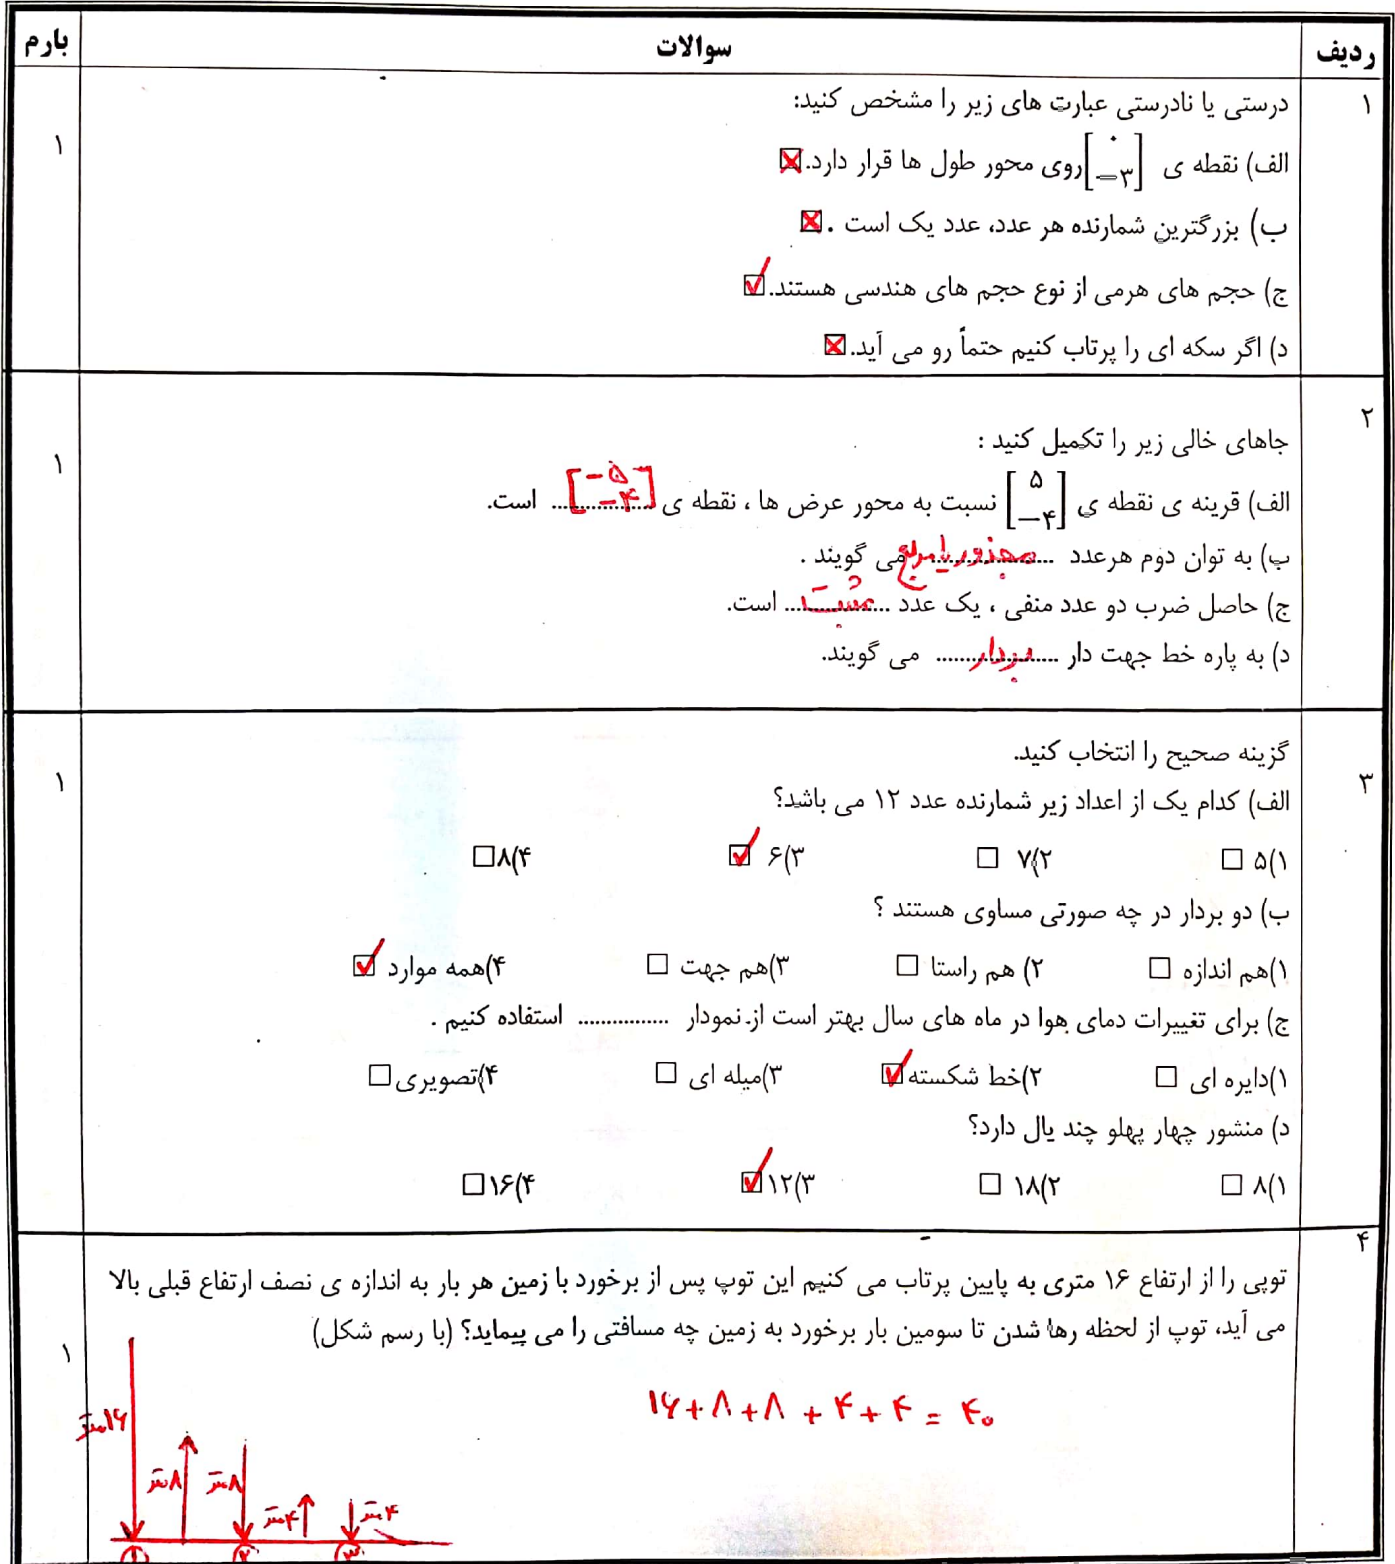 ردیف سوالات بارم
۱ درستی یا نادرستی عبارت های زیر را مشخص کنید:
الف) نقطه ی [۰ −۳] روی محور طول ها قرار دارد. ☒ ۱
ب) بزرگترین شمارنده هر عدد، عدد یک است . ☒
ج) حجم های هرمی از نوع حجم های هندسی هستند. ☑
د) اگر سکه ای را پرتاب کنیم حتماً رو می آید. ☒
۲ جاهای خالی زیر را تکمیل کنید : ۱
الف) قرینه ی نقطه ی [۵ −۴] نسبت به محور عرض ها ، نقطه ی [−۵ −۴] است.
ب) به توان دوم هرعدد مجذور یا مربع می گویند .
ج) حاصل ضرب دو عدد منفی ، یک عدد مثبت است.
د) به پاره خط جهت دار بردار می گویند.
گزینه صحیح را انتخاب کنید.
۳ الف) کدام یک از اعداد زیر شمارنده عدد ۱۲ می باشد؟ ۱
۱)۵ ☐ ۲)۷ ☐ ۳)۶ ☑ ۴)۸ ☐
ب) دو بردار در چه صورتی مساوی هستند ؟
۱)هم اندازه ☐ ۲) هم راستا ☐ ۳)هم جهت ☐ ۴)همه موارد ☑
ج) برای تغییرات دمای هوا در ماه های سال بهتر است از نمودار ................ استفاده کنیم .
۱)دایره ای ☐ ۲)خط شکسته ☑ ۳)میله ای ☐ ۴)تصویری ☐
د) منشور چهار پهلو چند یال دارد؟
۱)۸ ☐ ۲)۱۸ ☐ ۳)۱۲ ☑ ۴)۱۶ ☐
۴ توپی را از ارتفاع ۱۶ متری به پایین پرتاب می کنیم این توپ پس از برخورد با زمین هر بار به اندازه ی نصف ارتفاع قبلی بالا
می آید، توپ از لحظه رها شدن تا سومین بار برخورد به زمین چه مسافتی را می پیماید؟ (با رسم شکل) ۱
۱۶+۸+۸+۴+۴=۴۰
۱۶متر ۸متر ۸متر ۴متر ۴متر
۱ ۲ ۳